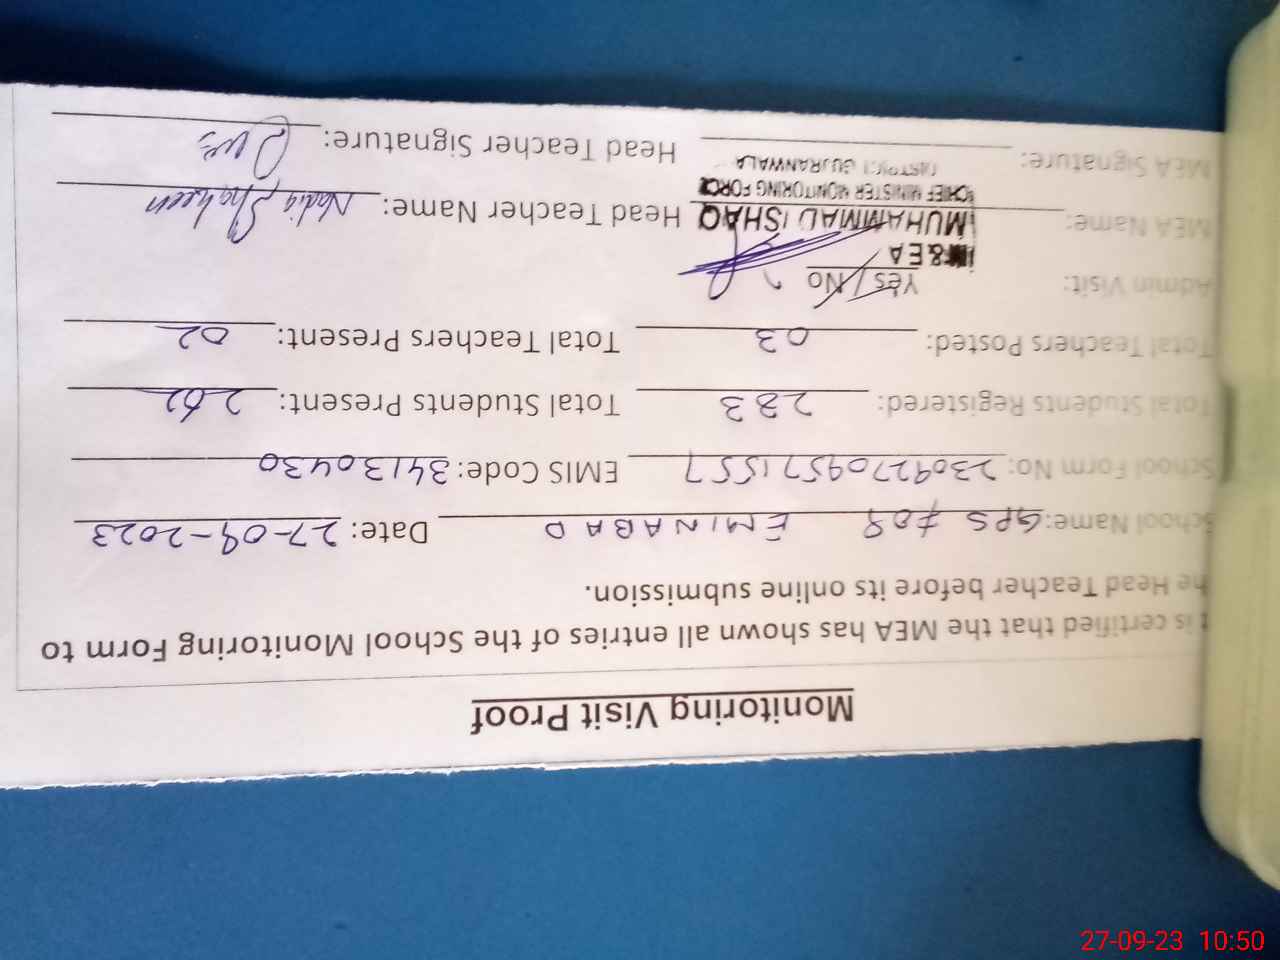 Monitoring Visit Proof
t is certified that the MEA has shown all entries of the School Monitoring Form to
he Head Teacher before its online submission.
School Name: GPS EMINABAD Date: 27-09-2023
School Form No: 23092709571557 EMIS Code: 34130430
Total Students Registered: 283 Total Students Present: 262
Total Teachers Posted: 03 Total Teachers Present: 02
Admin Visit: Yes / No
M&EA
MEA Name: MUHAMMAD ISHAQ Head Teacher Name: Nadia Shaheen
CHIEF MINISTER MONITORING FORCE
DISTRICT GUJRANWALA
MEA Signature: Head Teacher Signature:
27-09-23 10:50